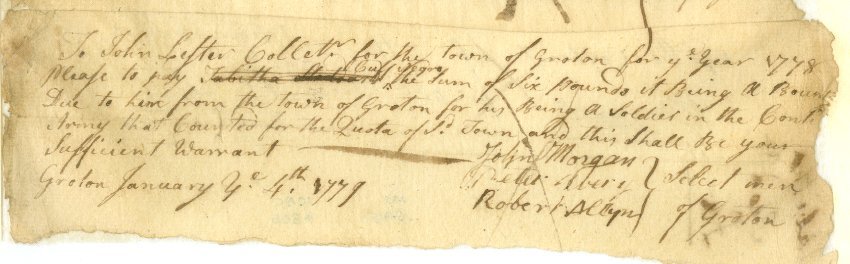 To John Lester Collet.r for the town of Groton for y.e Year 1778
Please to pay Tabitha Cuff Negro the Sum of Six Pounds it Being A Boun
Due to him from the town of Groton for his Being A Soldier in the Cont.
Army that Counted for the Quota of S.d Town and this Shall Be your
Sufficient Warrant
John Morgan
Groton January y.e 4.th 1779
Peter Avery } Select men
Robert Allyn } of Groton